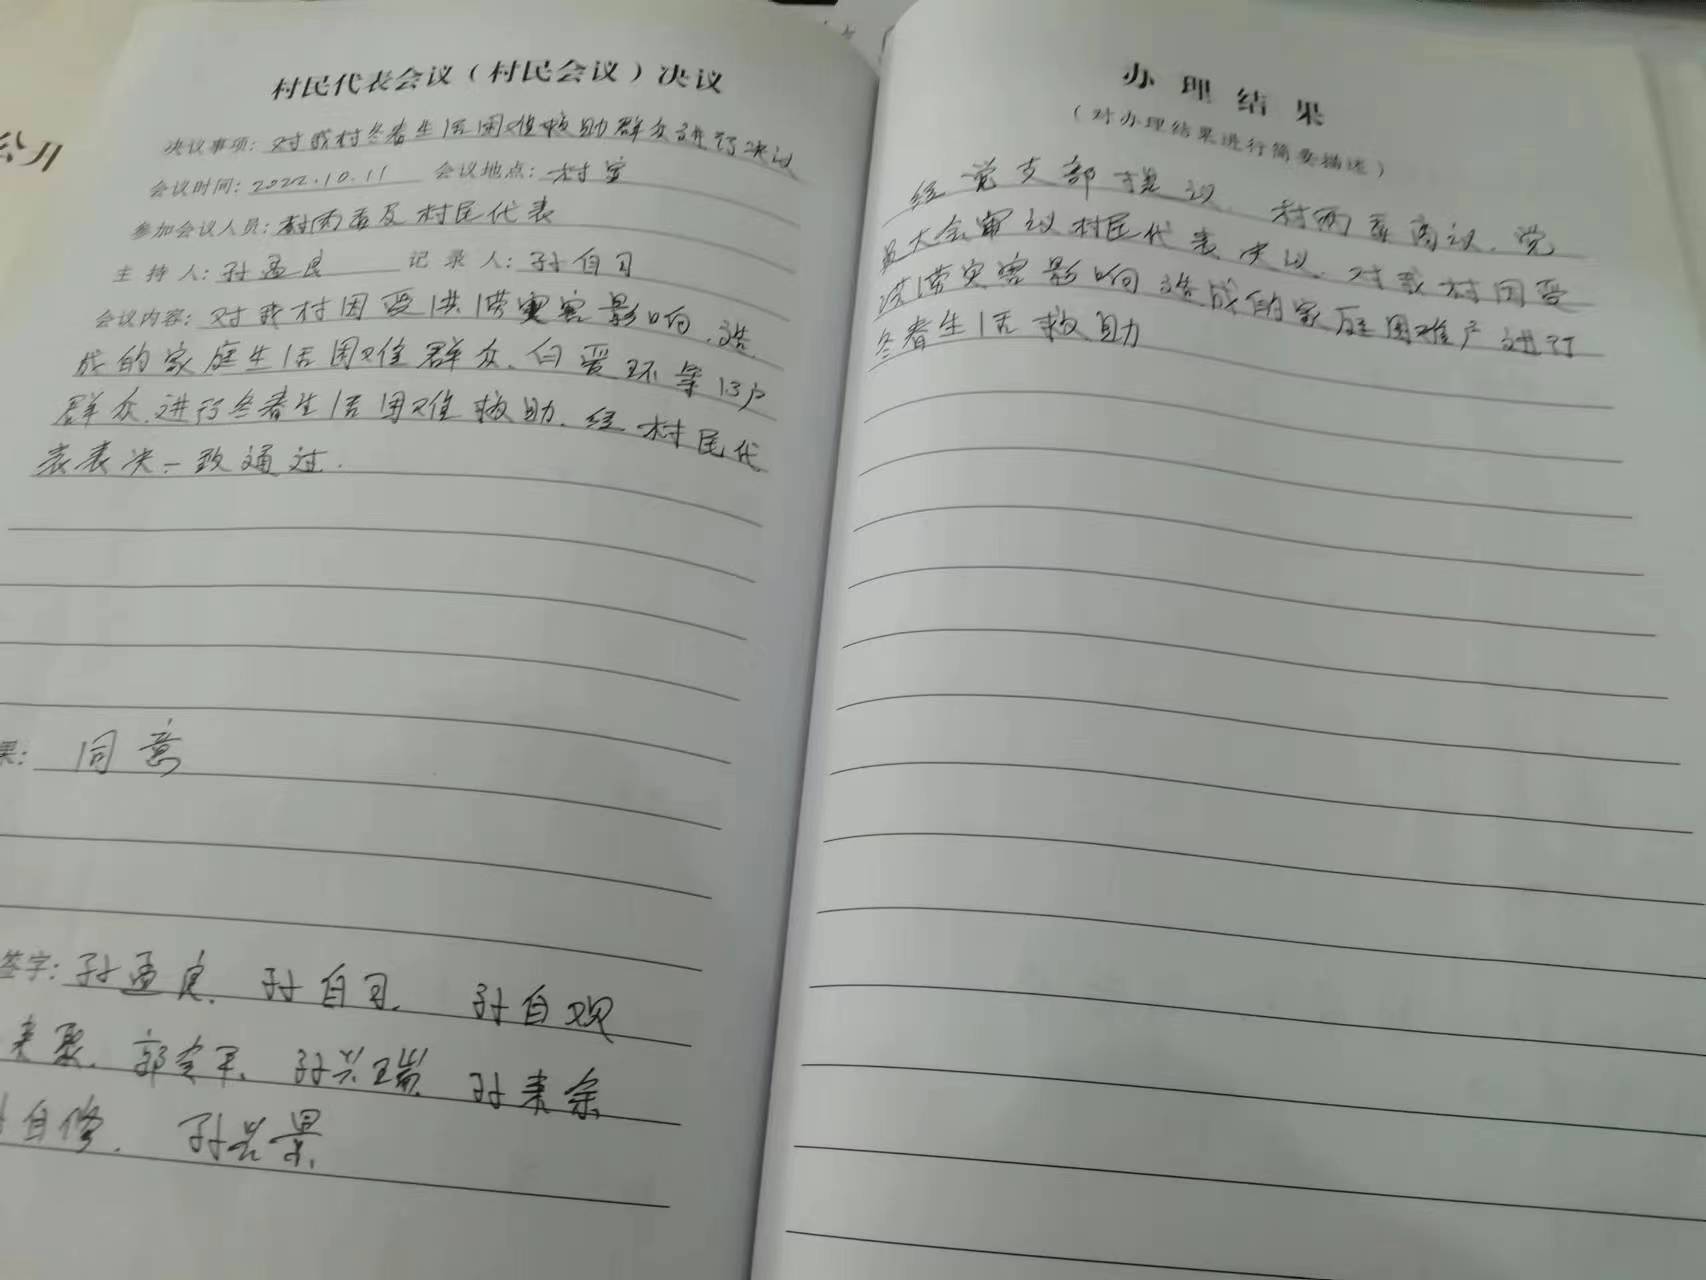 村民代表会议（村民会议）决议
决议事项：对我村冬春生活困难救助群众进行决议
会议时间：2022.10.11 会议地点：村室
参加会议人员：村两委及村民代表
主持人：孙孟良 记录人：孙自习
会议内容：对我村因受洪涝灾害影响，造
成的家庭生活困难群众，白爱环等13户
群众，进行冬春生活困难救助，经村民代
表表决一致通过．
果：同意
签字：孙孟良、孙自习、孙自观
来聚、郭全军、孙兴瑞、孙来余
自修、孙兴景
公开
办理结果
（对办理结果进行简要描述）
经党支部提议、村两委商议、党
员大会审议村民代表决议、对我村因受
洪涝灾害影响造成的家庭困难户进行
冬春生活救助